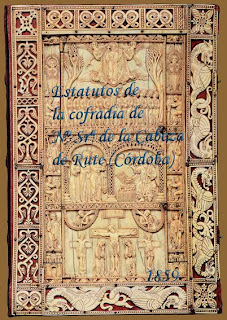 Estatutos de
la cofradia de
Nª Srª de la Cabeza
de Rute (Córdoba)
1859